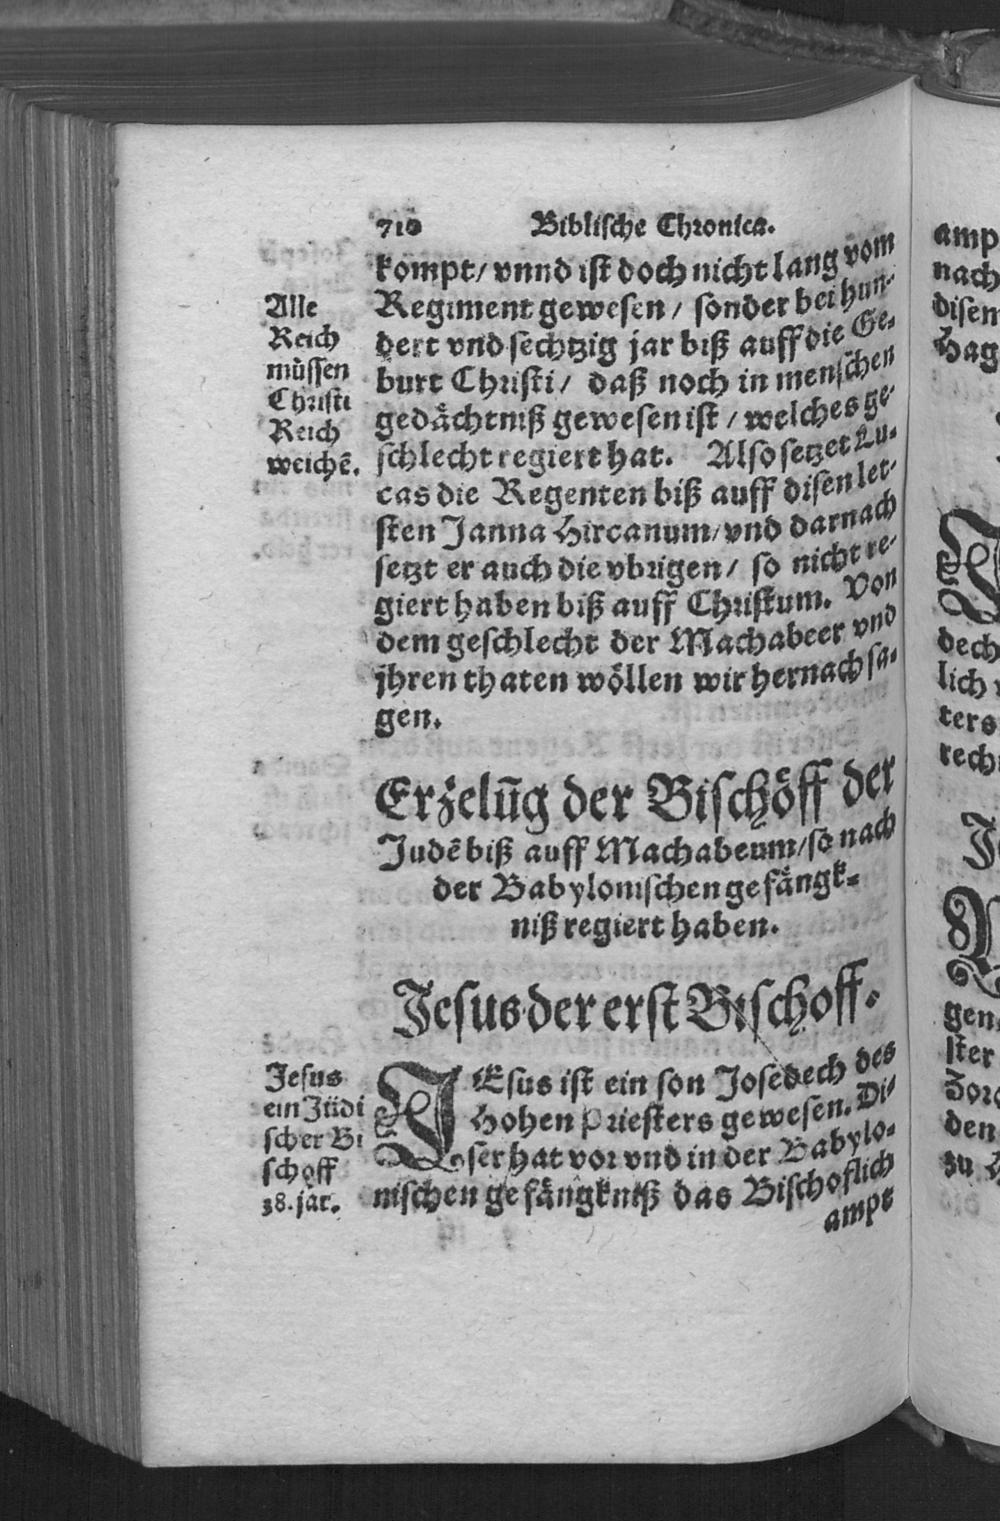 710 Biblische Chronica.
kompt/ vnnd ist doch nicht lang vom
Regiment gewesen / sonder bei hun-
dert vnd sechtzig jar biß auff die Ge-
burt Christi/ daß noch in menschen
gedächtniß gewesen ist / welches ge-
schlecht regiert hat. Also setzet Lu-
cas die Regenten biß auff disen let-
sten Janna Hircanum/ vnd darnach
setzt er auch die vbrigen/ so nicht re-
giert haben biß auff Christum. Von
dem geschlecht der Machabeer vnd
jhren thaten wöllen wir hernach sa-
gen.
Alle
Reich
müssen
Christi
Reich
weichẽ.
Erzelũg der Bischöff der
Judẽ biß auff Machabeum/ so nach
der Babylonischen gefängk-
niß regiert haben.
Jesus der erst Bischoff.
JEsus ist ein son Josedech des
Hohen Priesters gewesen. Di-
ser hat vor vnd in der Babylo-
nischen gefängkniß das Bischoflich
ampt
Jesus
ein Jüdi
scher Bi
schoff
38. jar.
amp
nach
disem
Hag
dech
lich
ters
rech
gen
ster
Zoro
den
zu